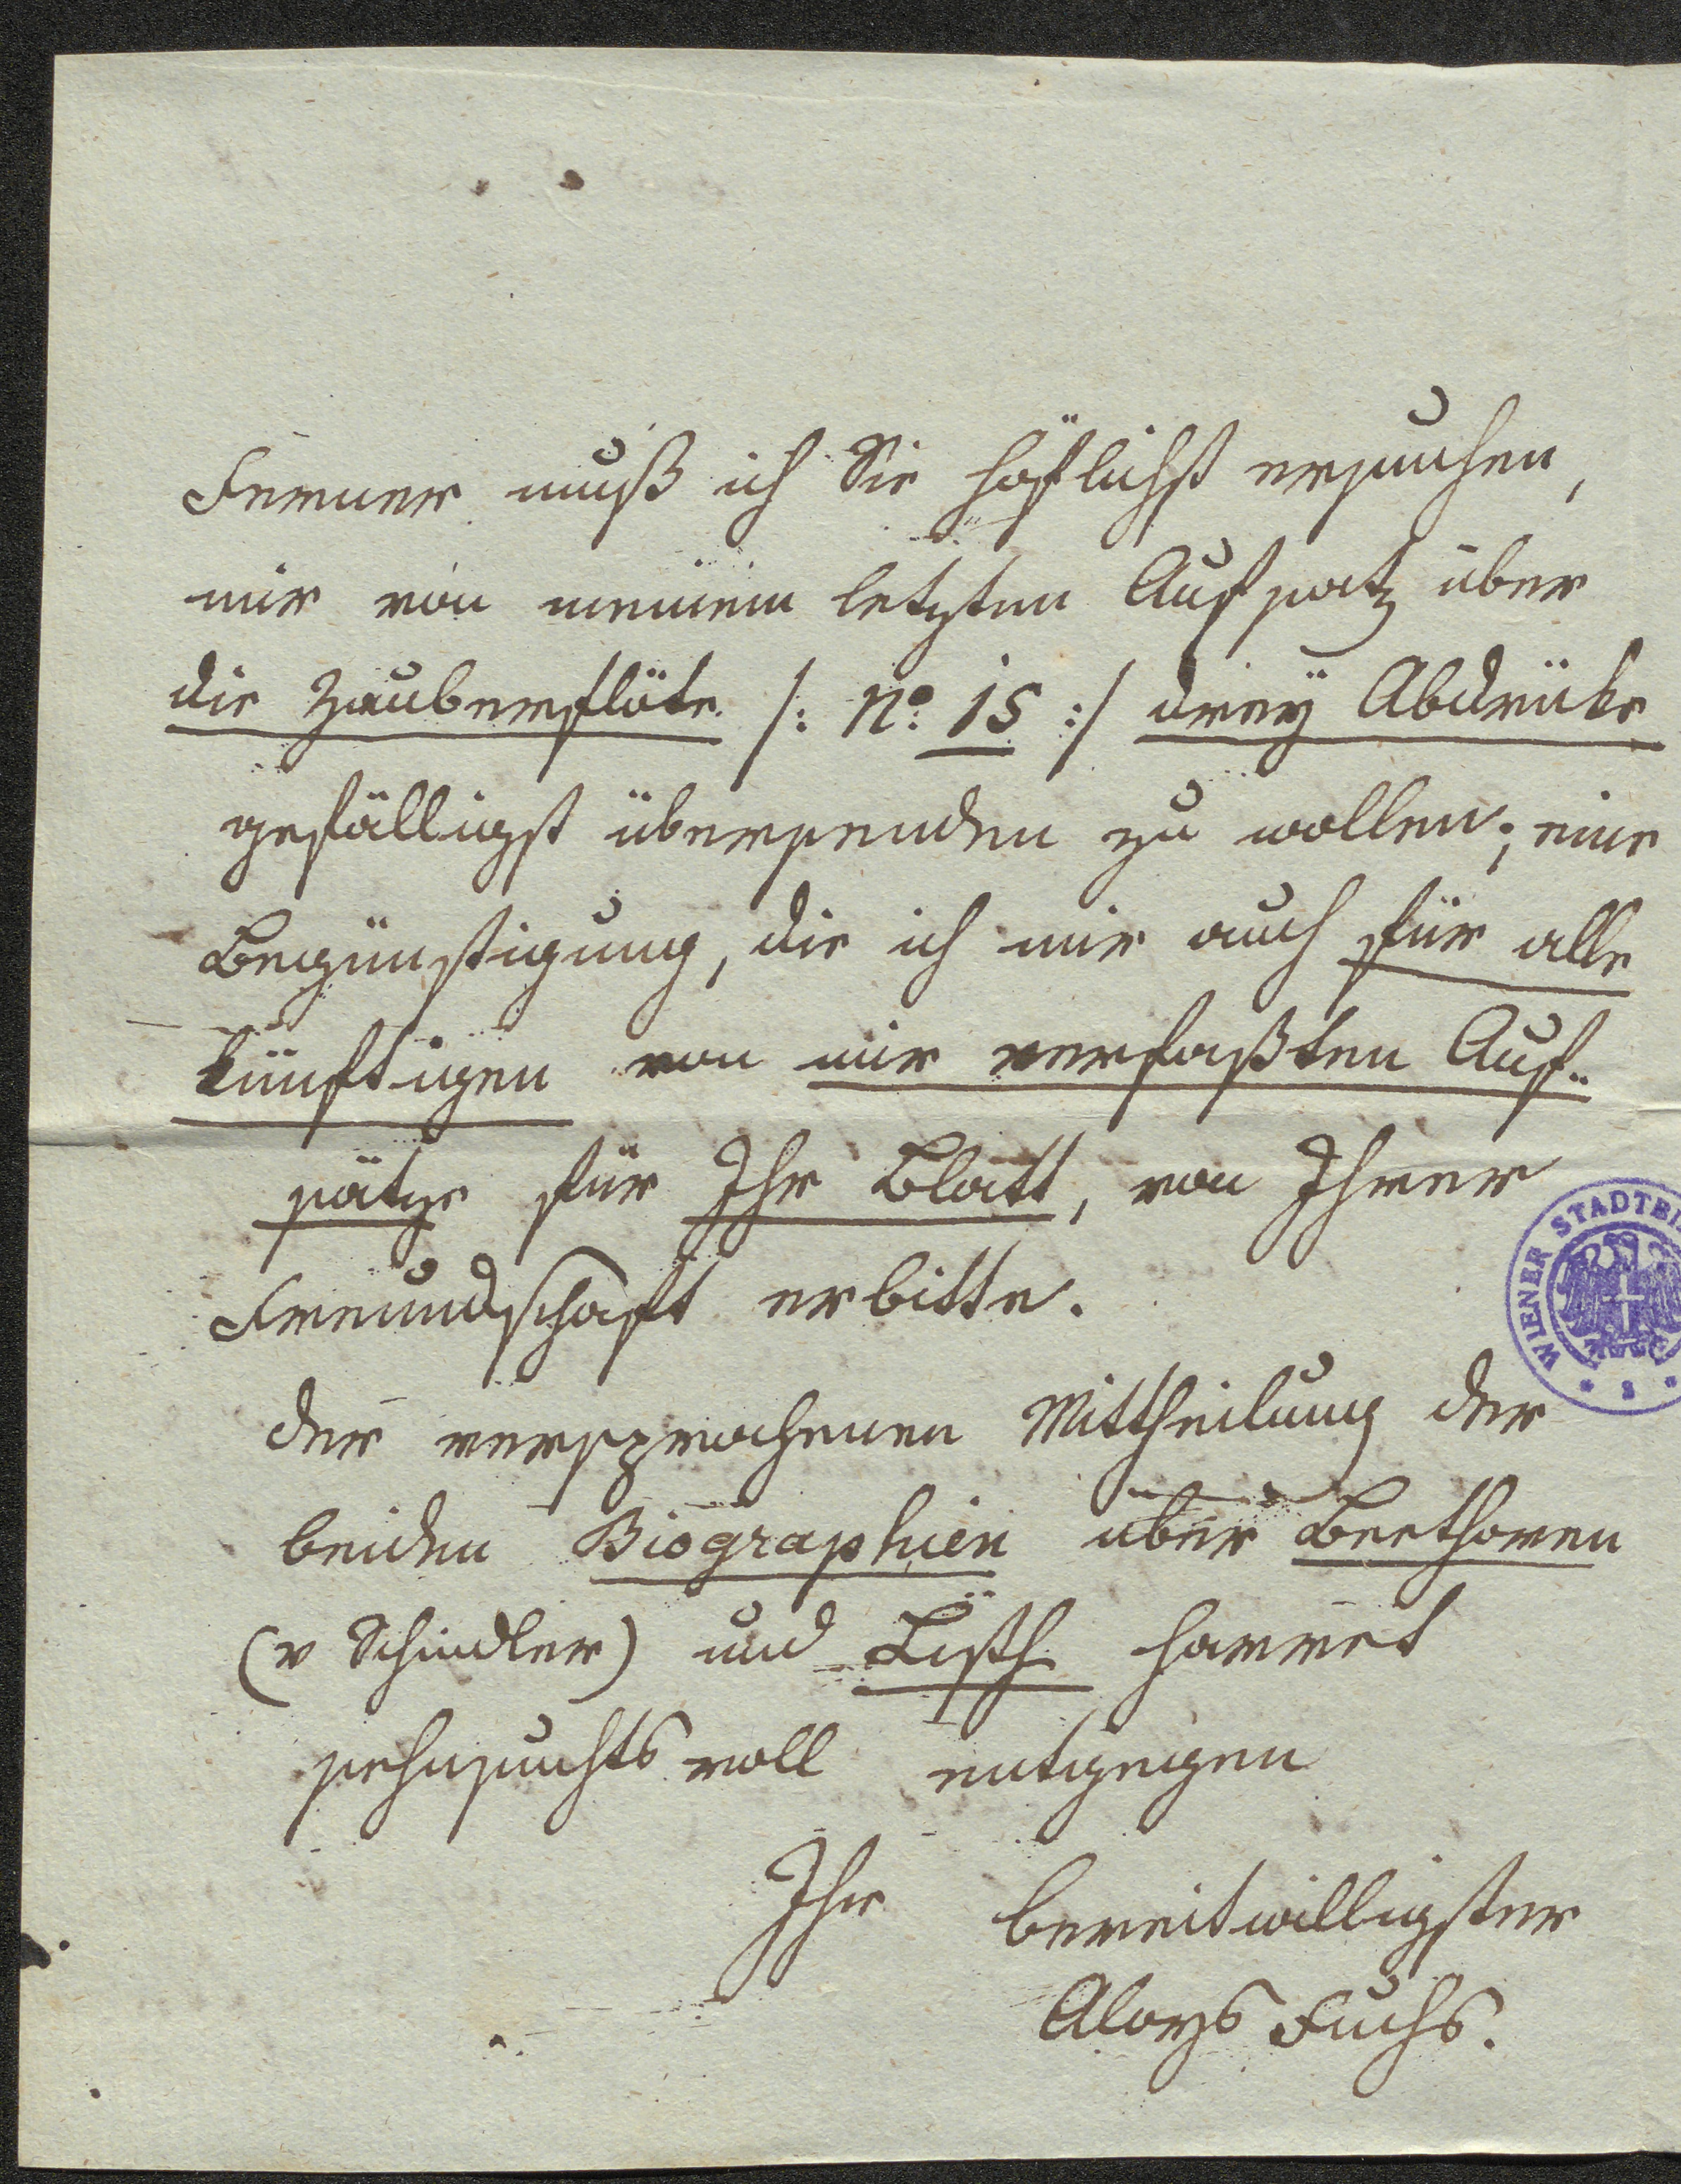 Ferner muß ich Sie höflichst ersuchen,
mir von meinem letzten Aufsatz über
die Zauberflöte /: No: 15 :/ drey Abdrüke
gefälligst übersenden zu wollen; eine
Begünstigung, die ich mir auch für alle
künftigen von mir verfaßten Auf-
sätze für Ihr Blatt, von Ihrer
Freundschaft erbitte.
Der versprochenen Mittheilung der
beiden Biographien über Beethoven
(v Schindler) und Listh harret
sehnsuchtsvoll entgegen
Ihr bereitwilligster
Aloys Fuchs.
WIENER STADTBI